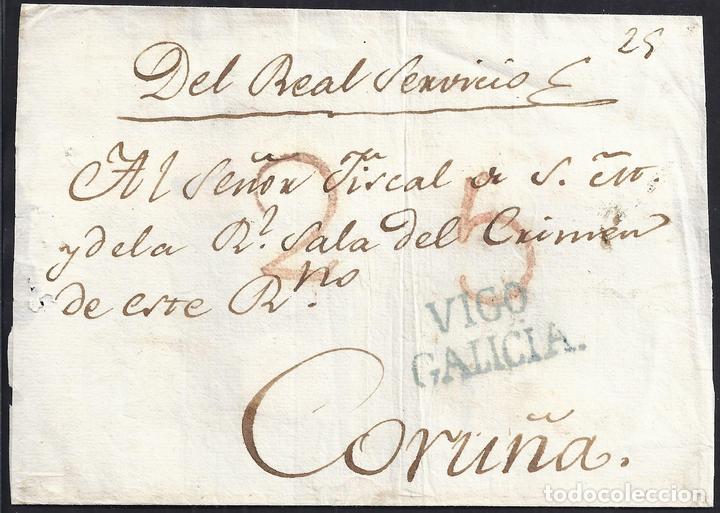 25
Del Real Servicio
Al Señor Fiscal de S. M.
y dela Rl. Sala del Crimen
de este R.no
2 5
VIGO
GALICIA.
Coruña.
todocoleccion